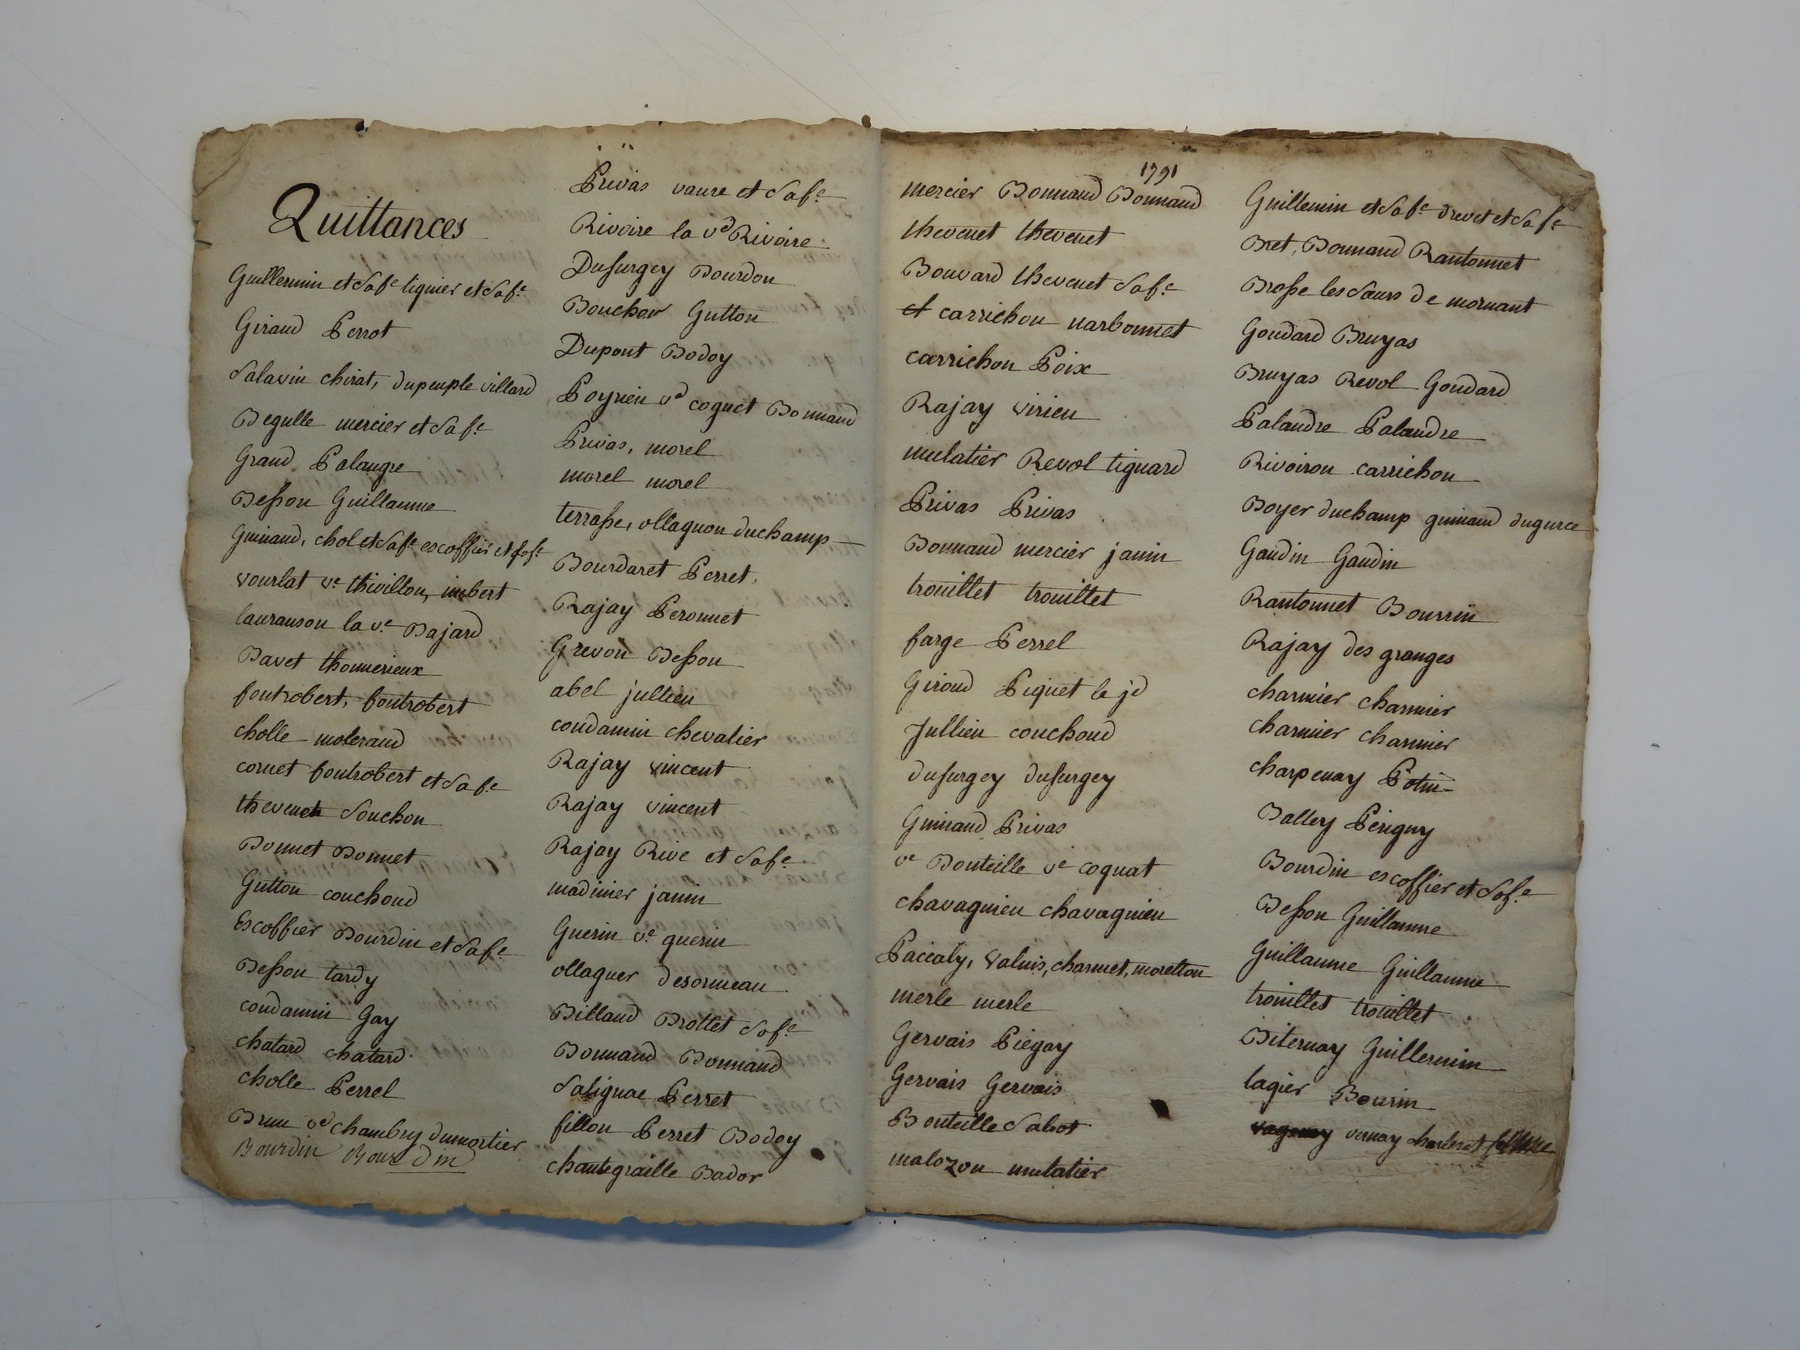 Quittances
Guillermin et Sa fe. tignier et Sa fe.
Giraud Perrot
Salavin chirat, dupeuple villard
Begulle mercier et Sa fe.
Grand Palangre
Besson Guillaume
Guinand, chol et Sa fe. escoffier et Sa fe.
vourlat ve. thivillon, imbert
lauranson la ve. Bajard
Bavet thonnerieux
fontrobert, fontrobert
cholle moleraud
cornet fontrobert et Sa fe.
thevenet Souchon
Bonnet Bonnet
Gutton couchoud
Escoffier Bourdin et Sa fe.
Besson tardy
condamin Gay
chatard chatard
cholle Perrel
Brun vd chambry dumortier
Bourdin Bourdin
Privas vaure et Sa fe.
Rivoire la vd Rivoire
Dufurgey Bourdon
Bouchor Gutton
Dupont Bodoy
Poyrieu vd coquet Bonnand
Privas, morel
morel morel
terrasse, ollagnon duchamp
Bourdaret Perret
Rajay Peronnet
Grevon Besson
abel jullien
condamin chevalier
Rajay vincent
Rajay vincent
Rajay Rive et Sa fe.
madinier janin
Guerin ve. guerin
ollaguer desormeau
Billaud Brottet Sa fe.
Bonnand Bonnand
Salignac Perret
fillon Perret Bodoy
chantegraille Bador
1791
mercier Bonnand Bonnand
thevenet thevenet
Bouvard thevenet Sa fe.
et carrichon narbonnet
carrichon Poix
Rajay virieu
mulatier Revol tignard
Privas Privas
Bonnand mercier janin
trouillet trouillet
farge Perrel
Giroud Piquet le jd
Jullien couchoud
dufurgey dufurgey
Guinand Privas
ve Bouteille ve coquat
chavagnieu chavagnieu
Paccaly, valuis, charmet, moretton
merle merle
Gervais Piegay
Gervais Gervais
Bouteille Sabot
malozon mulatier
Guillemin et Sa fe. drevet et Sa fe.
Bret, Bonnand Rantonnet
Brosse les Sœurs de mornant
Goudard Bruyas
Bruyas Revol Goudard
Palandre Palandre
Rivoiron carrichon
Boyer duchamp guinand dugurce
Gaudin Gaudin
Rantonnet Bourrin
Rajay des granges
charmier charmier
charmier charmier
charpenay Potin
Balley Perigny
Bourdin escoffier et Sa fe.
Besson Guillaume
Guillaume Guillaume
trouillet trouillet
Biternay Guillermin
lagier Bourin
vernay charles et femme